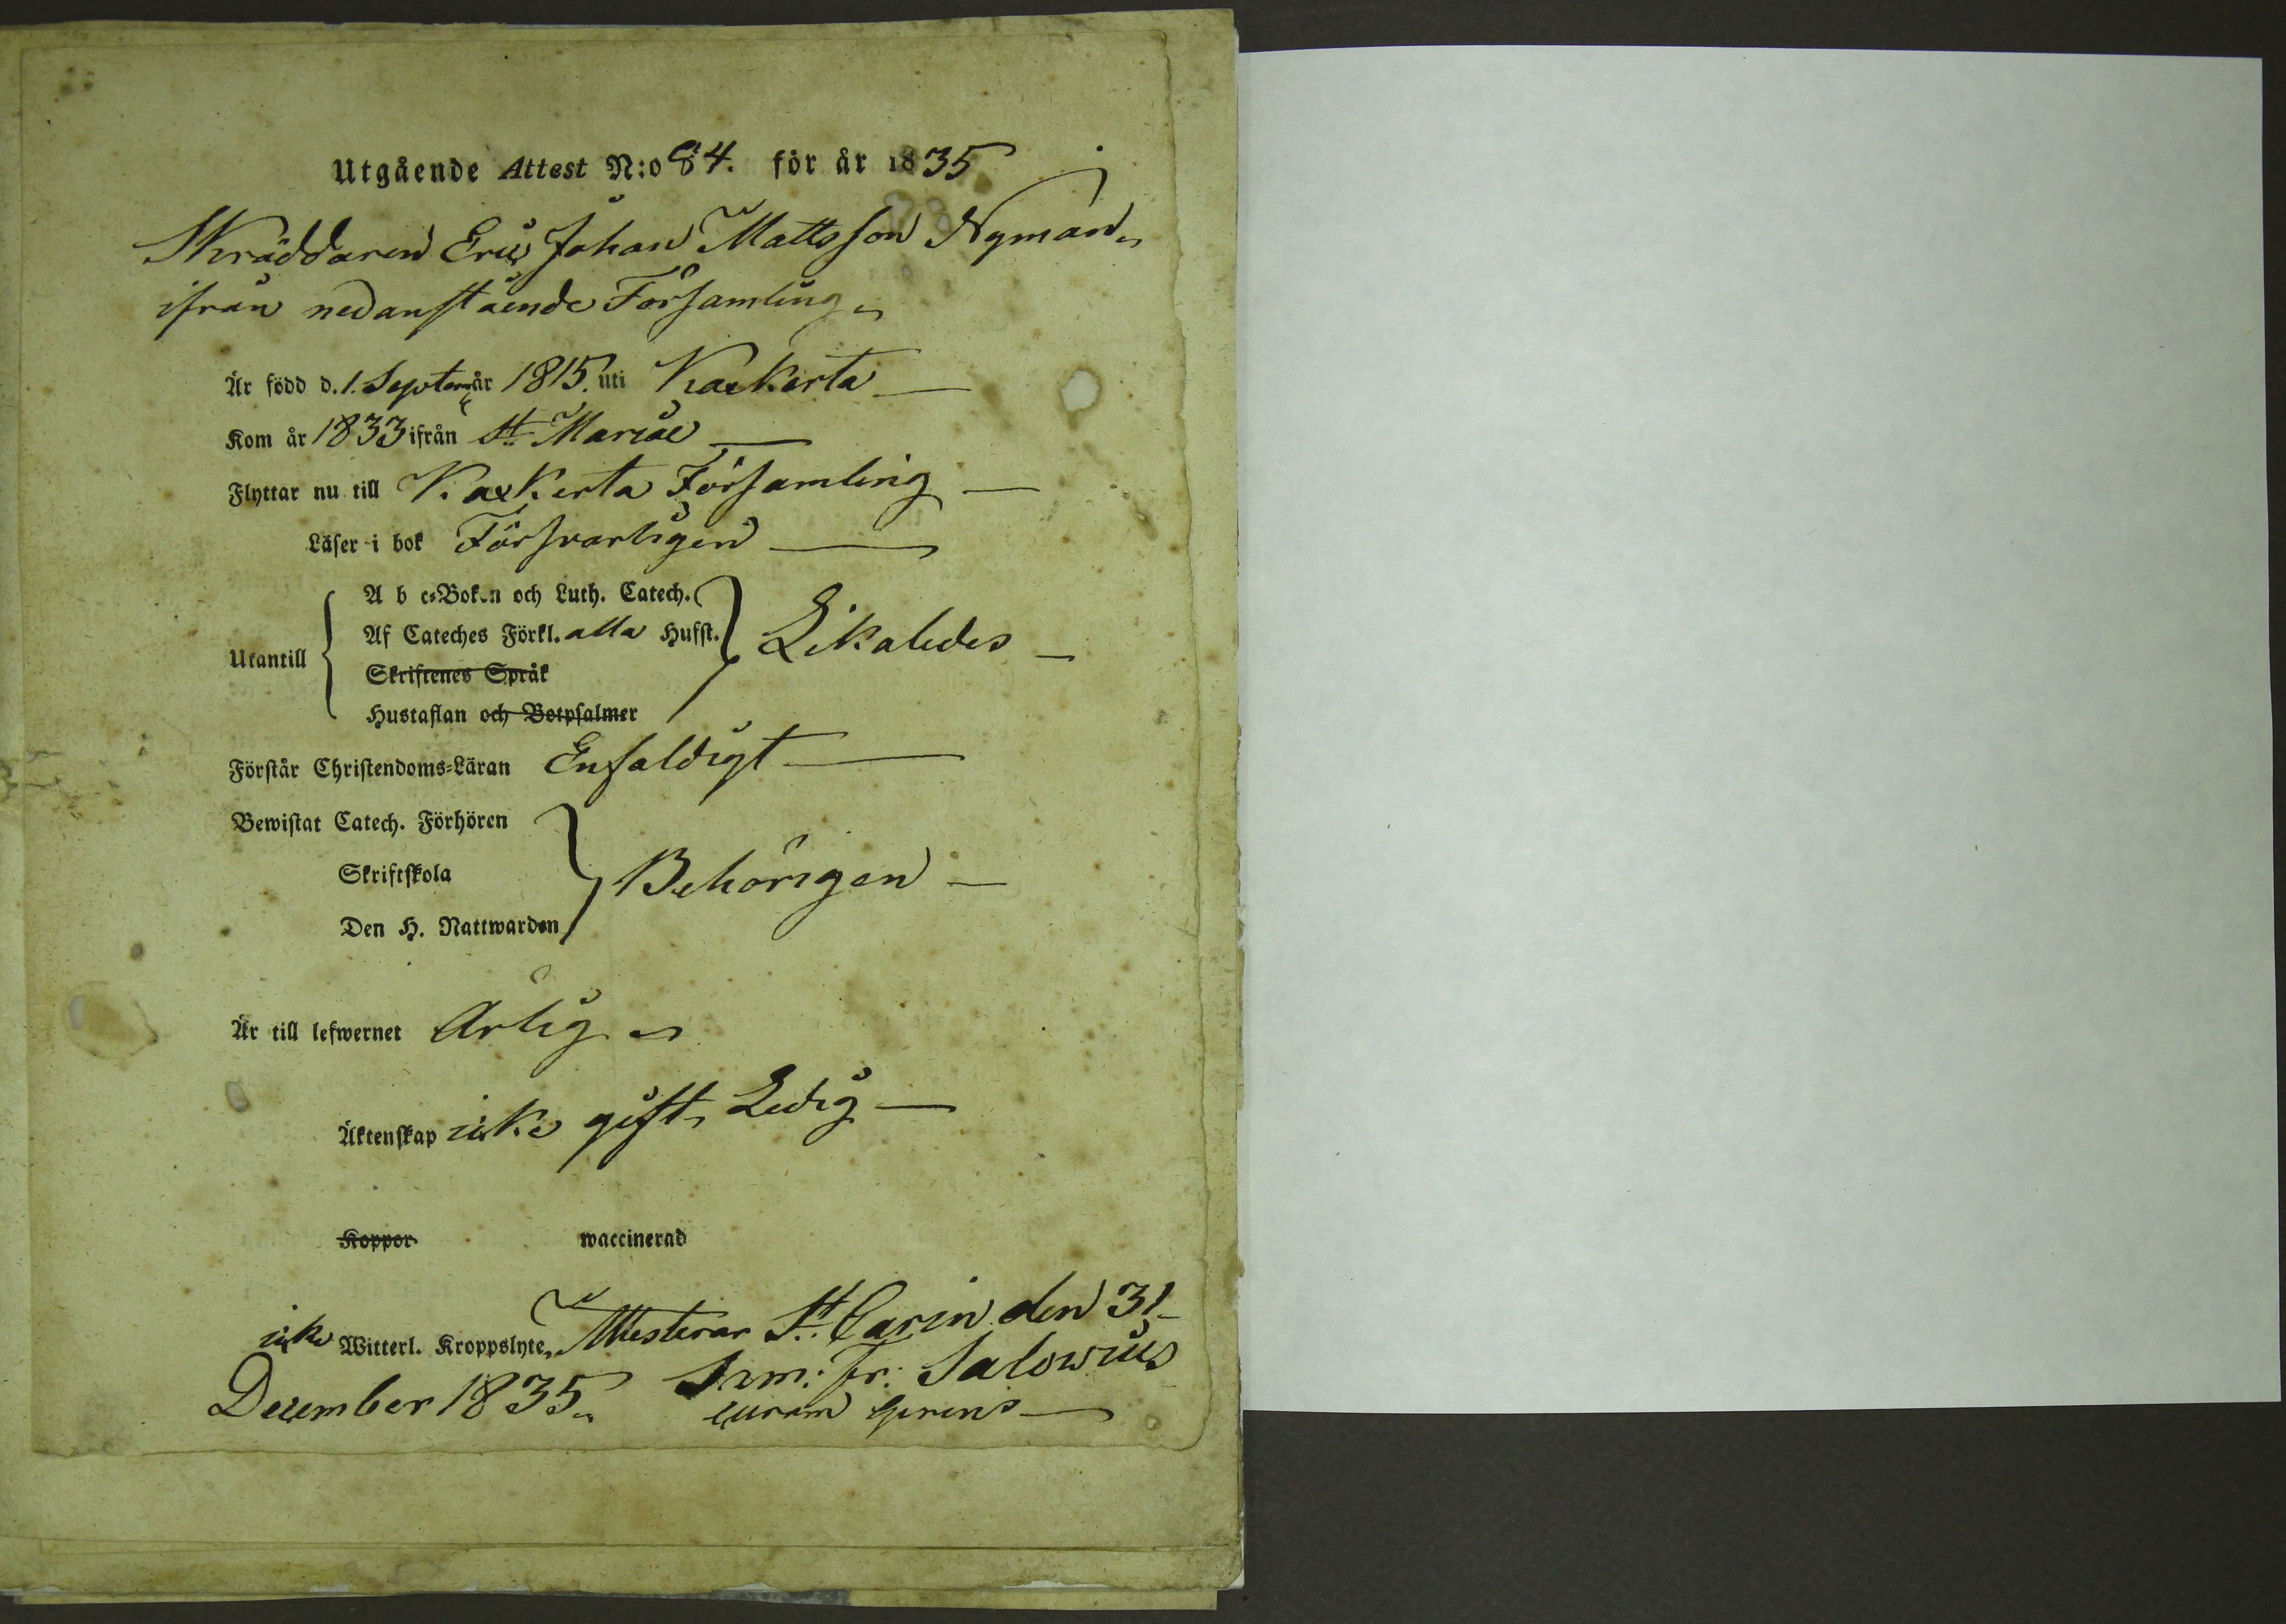 Utgående Attest N:o 84. för år 1835
Skräddaren Eric Johan Mattsson Nyman,
ifrån nedanstående Församling,
Är född d. 1. Septem år 1815. uti Kackerta
Kom år 1833 ifrån St Mariæ
Flyttar nu till Kackerta Församling
Läser i bok Försvarligen
Utantill
A b c-Boken och Luth. Catech.
Af Cateches Förkl. alla Hufst.
Skriftenes Språk
Hustaflan och Botpsalmer
Likaledes
Förstår Christendoms-Läran Enfaldigt
Bewistat Catech. Förhören
Skriftskola
Den H. Nattwarden
Behörigen
Är till lefwernet Ärlig
Äktenskap icke gift, Ledig
Koppor waccinerad
icke Witterl. Kroppslyte, Attesterar St. Carin den 31
December 1835. Fr: Salowius
curam gerens